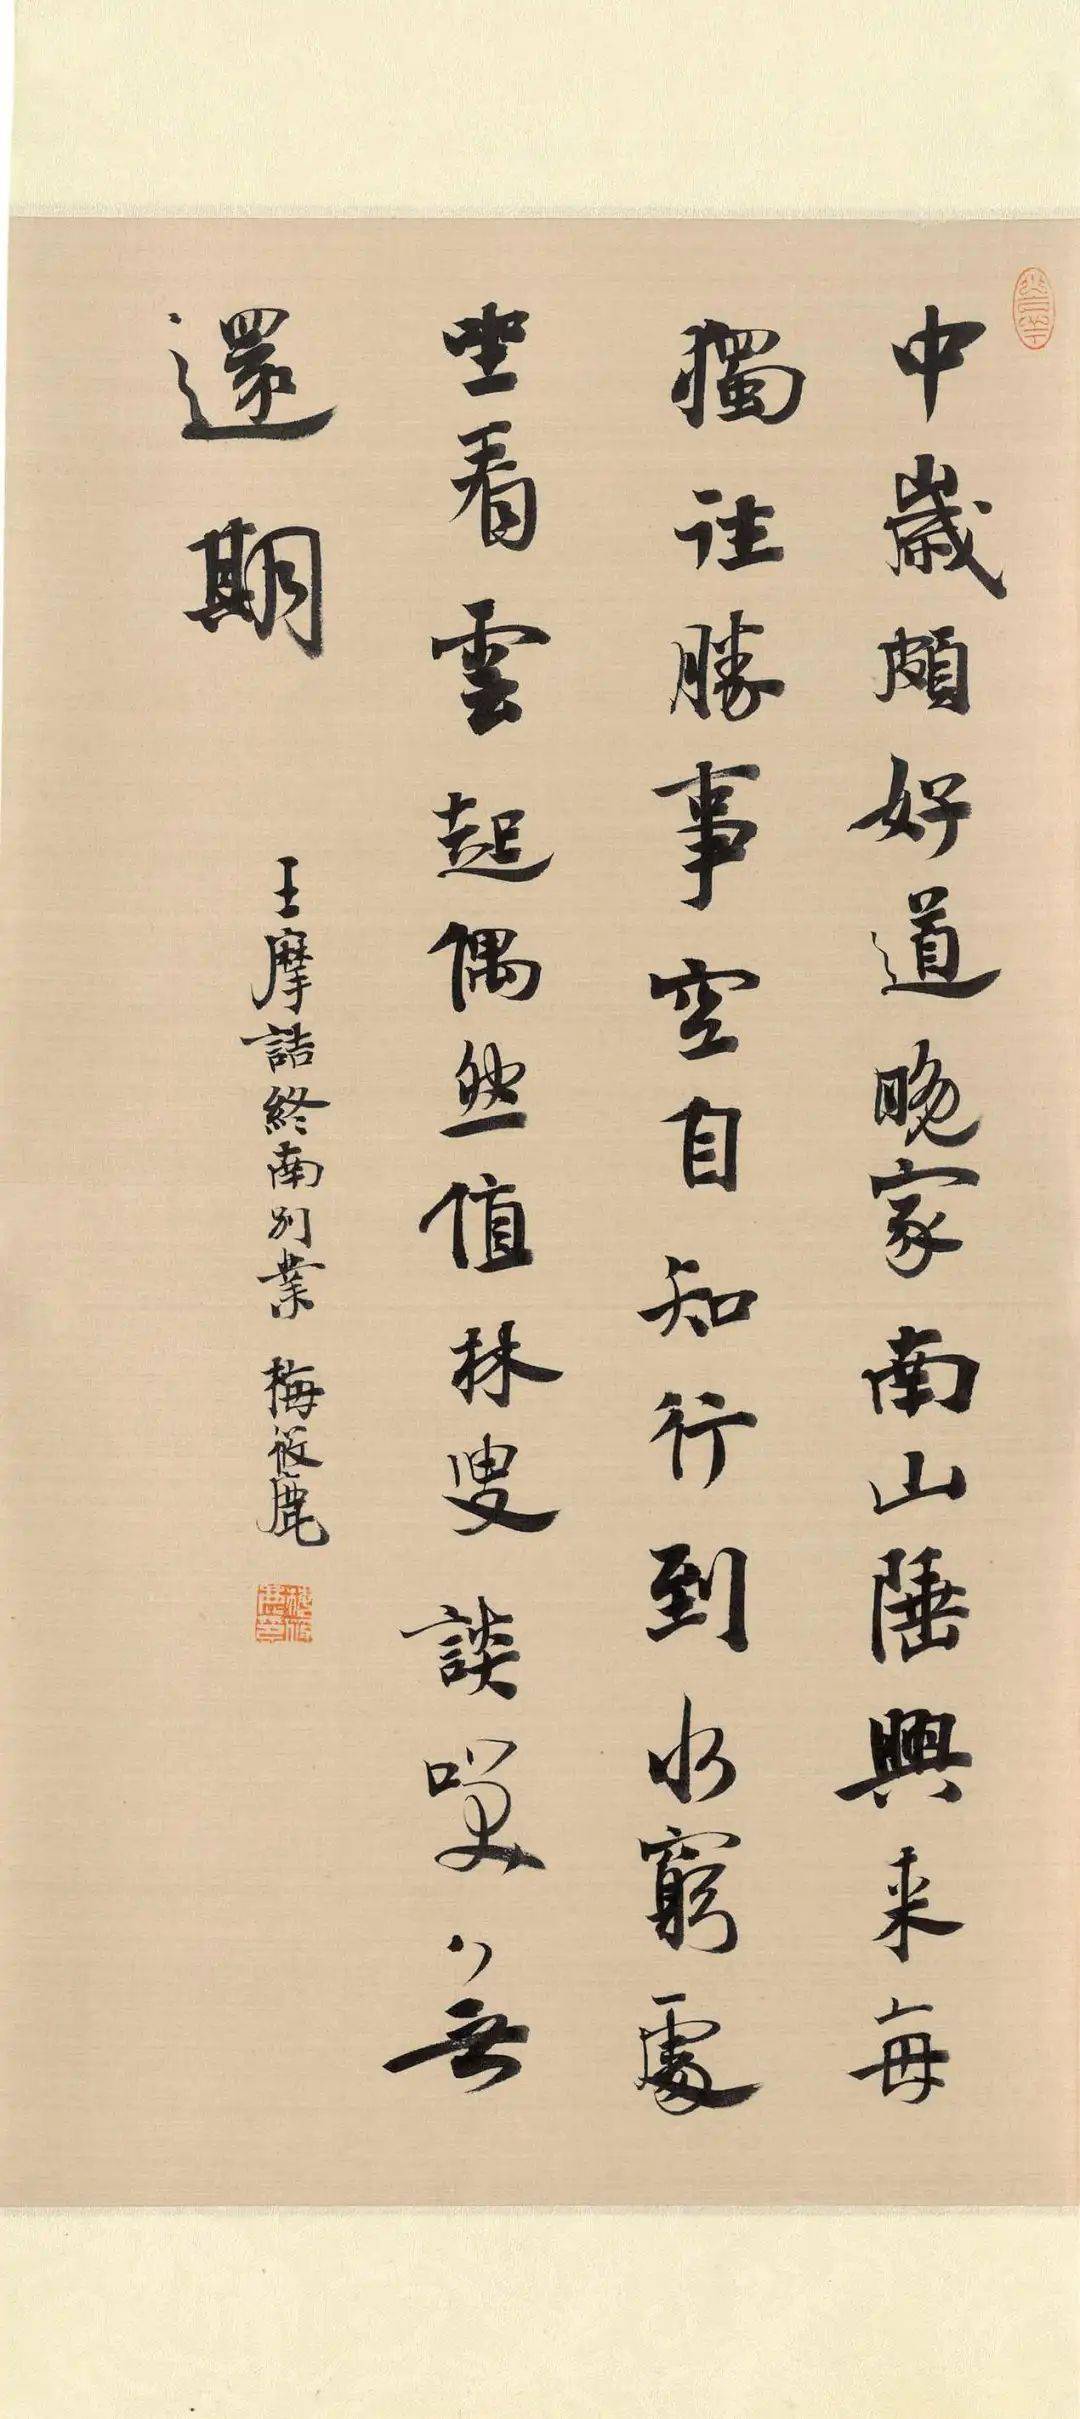 中歲頗好道晚家南山陲興来每
獨往勝事空自知行到水窮處
坐看雲起偶然值林叟談咲無
還期
王摩詰終南別業 梅筱鹿